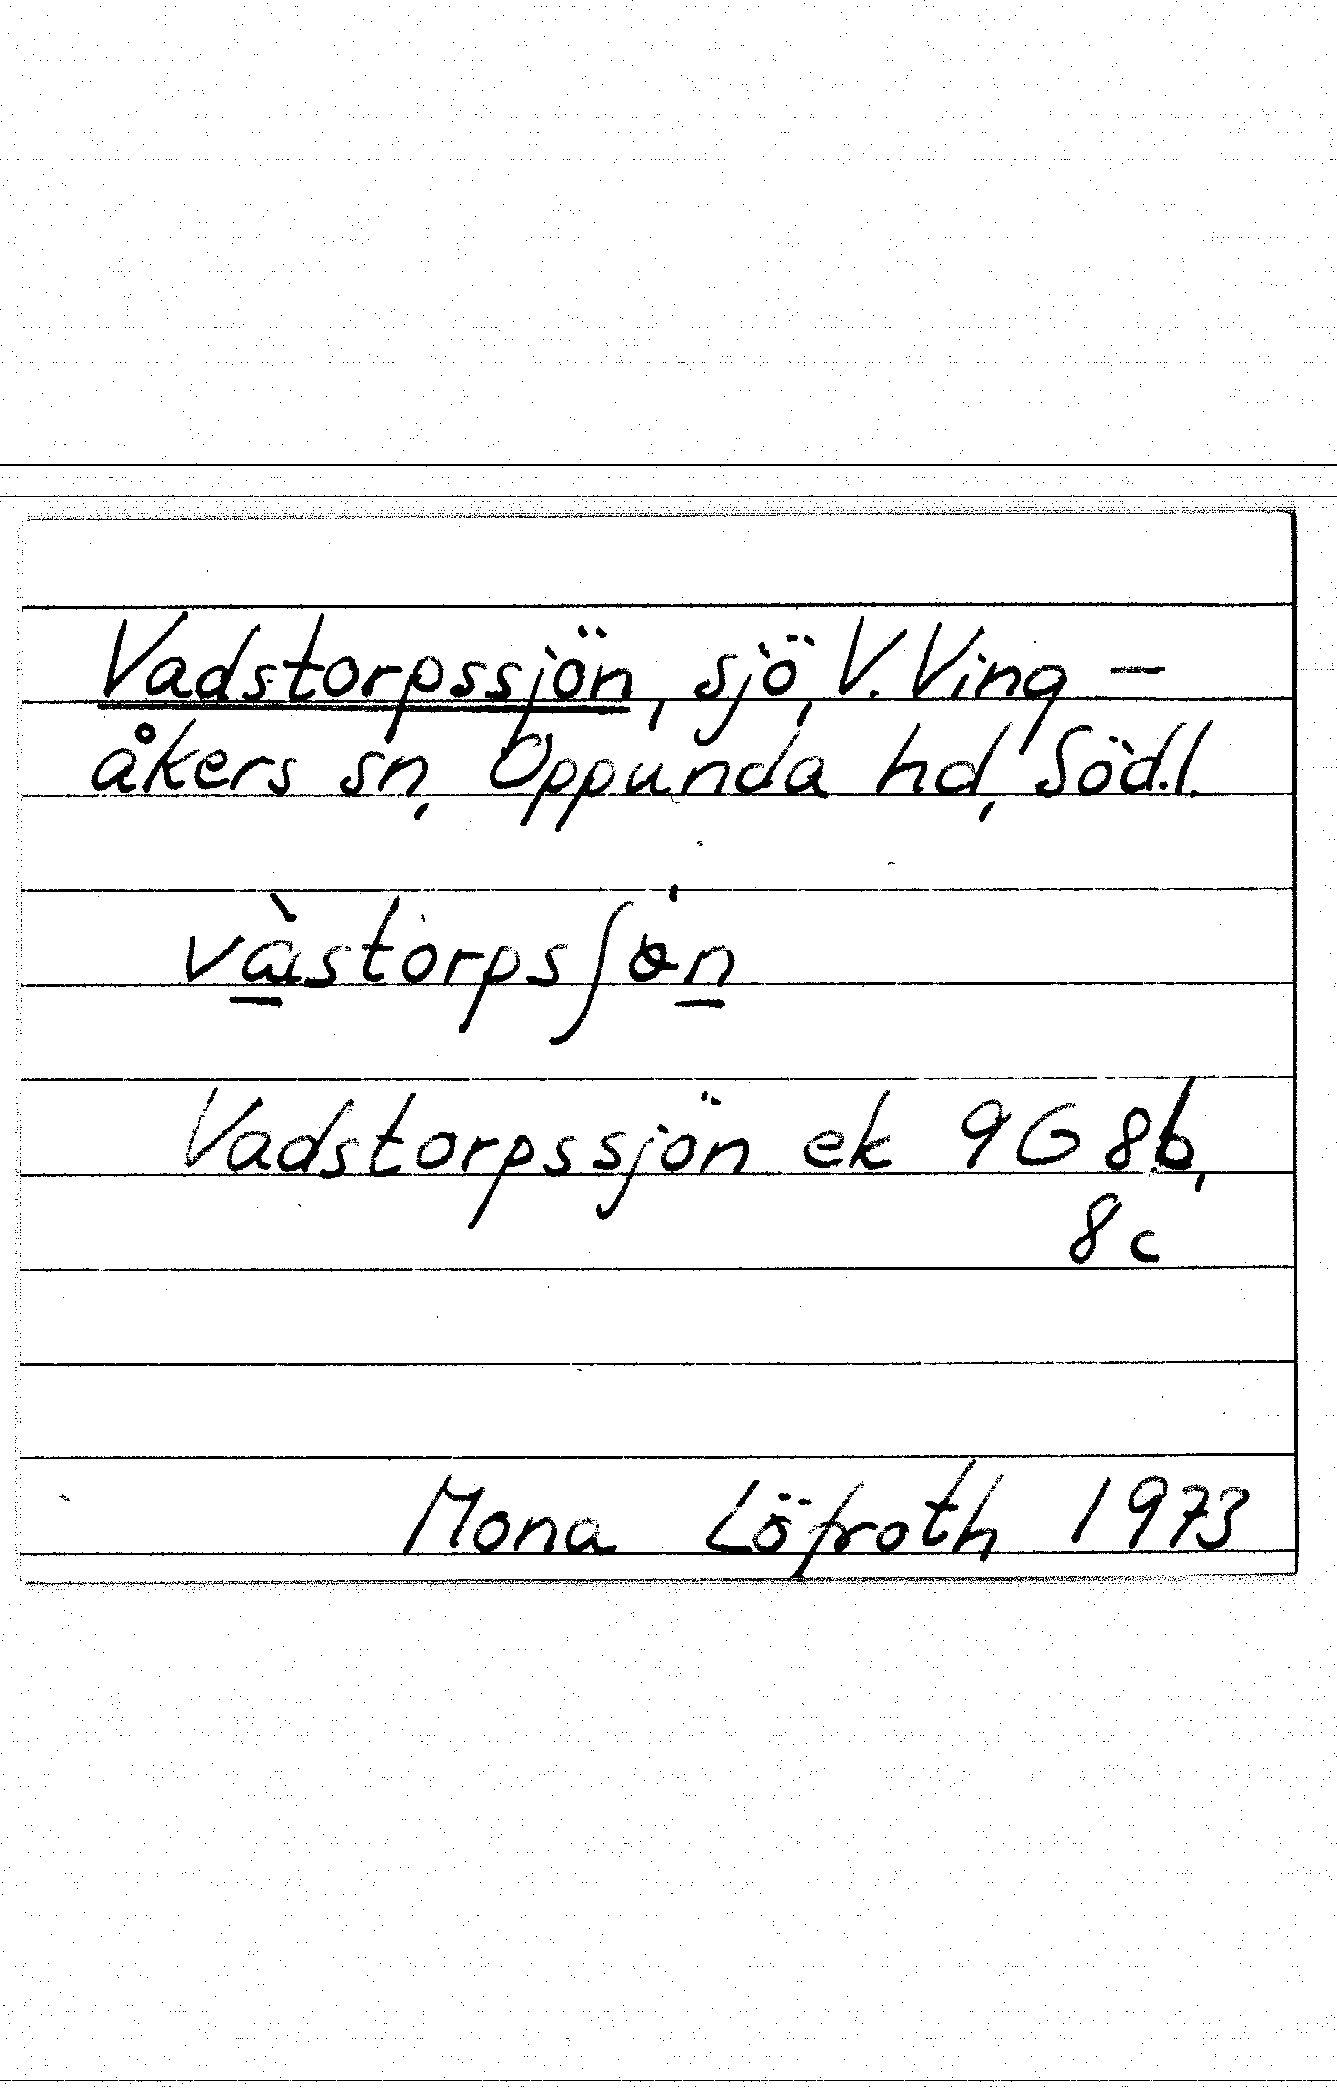 Vadstorpssjön, sjö, V. Ving-
åkers sn, Oppunda hd, Södl.
Vadstorpssjön ek 9G 8b,
8c
Mona Löfroth 1973